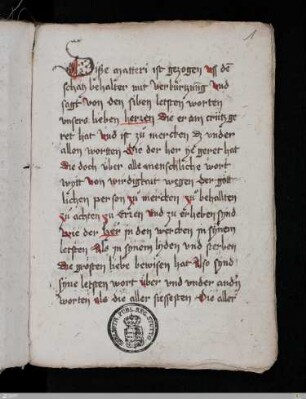 1
Disse matteri ist gezogen uß dē
schatz behalter mit verkürtzung vnd
sagt von den siben letsten worten
vnsers lieben herzen die er am crütz ge
ret hat vnd ist zu mercken dz vnder
allen worten die der her ye geret hat
die doch über alle menschliche wort
wytt von wirdigkait wegen der göt
lichen person zu mercken zu behallten
zu achten zu eren vnd zu erheben synd
wie der her in den wercken in synem
letsten als in synem lyden und sterben
die grosten liebe bewisen hat also synd
syne letsten wort über vnd vnder andn
worten als die aller siessesten die aller